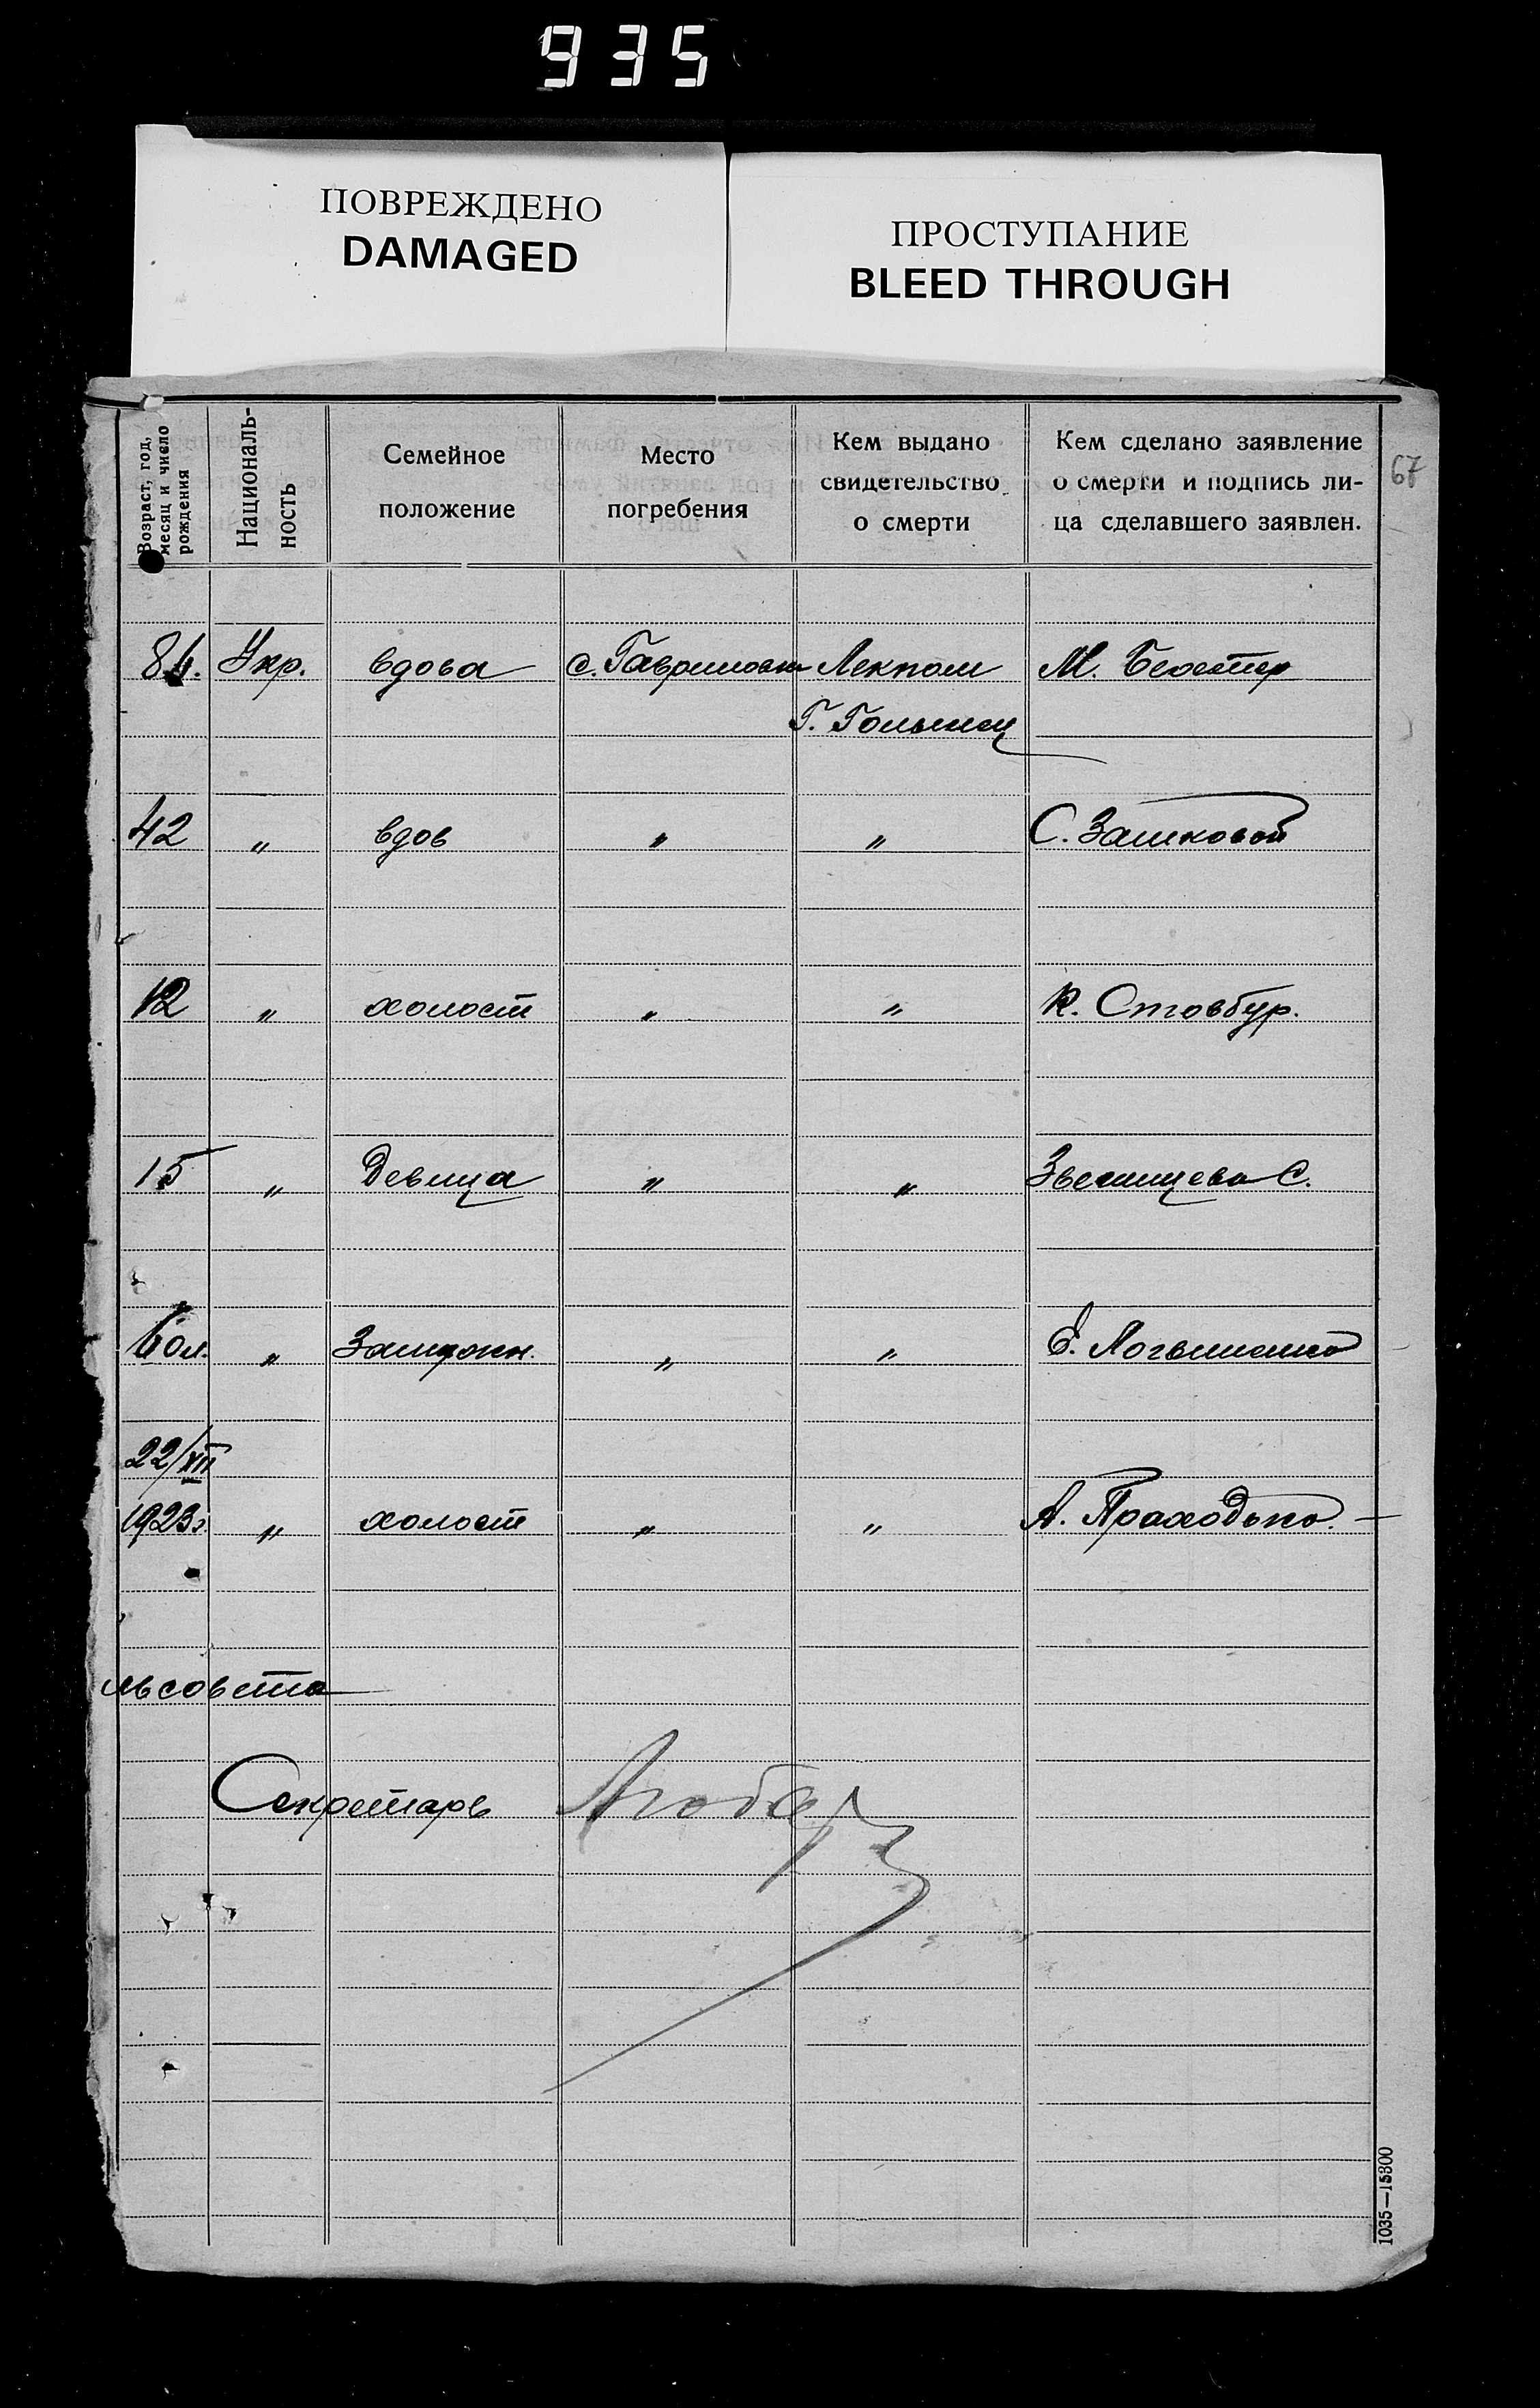 935
ПОВРЕЖДЕНО
DAMAGED
ПРОСТУПАНИЕ
BLEED THROUGH
Возраст, год,
месяц и число
рождения
Националь-
ность
Семейное
положение
Место
погребения
Кем выдано
свидетельство
о смерти
Кем сделано заявление
о смерти и подпись ли-
ца сделавшего заявлен.
67
Укр. вдова с. Гавриловка Лекпом М.
Г. Голынец
42 " вдов " " С. Зашковой
12 " холост " " К. Стовбур.
15 " Девица " " С.
60 л. " Замужн. " " Е. Логвиненко
22/XII
1923г. " холост " " А. Проходько.
льсовета
Секретарь
1035—15300